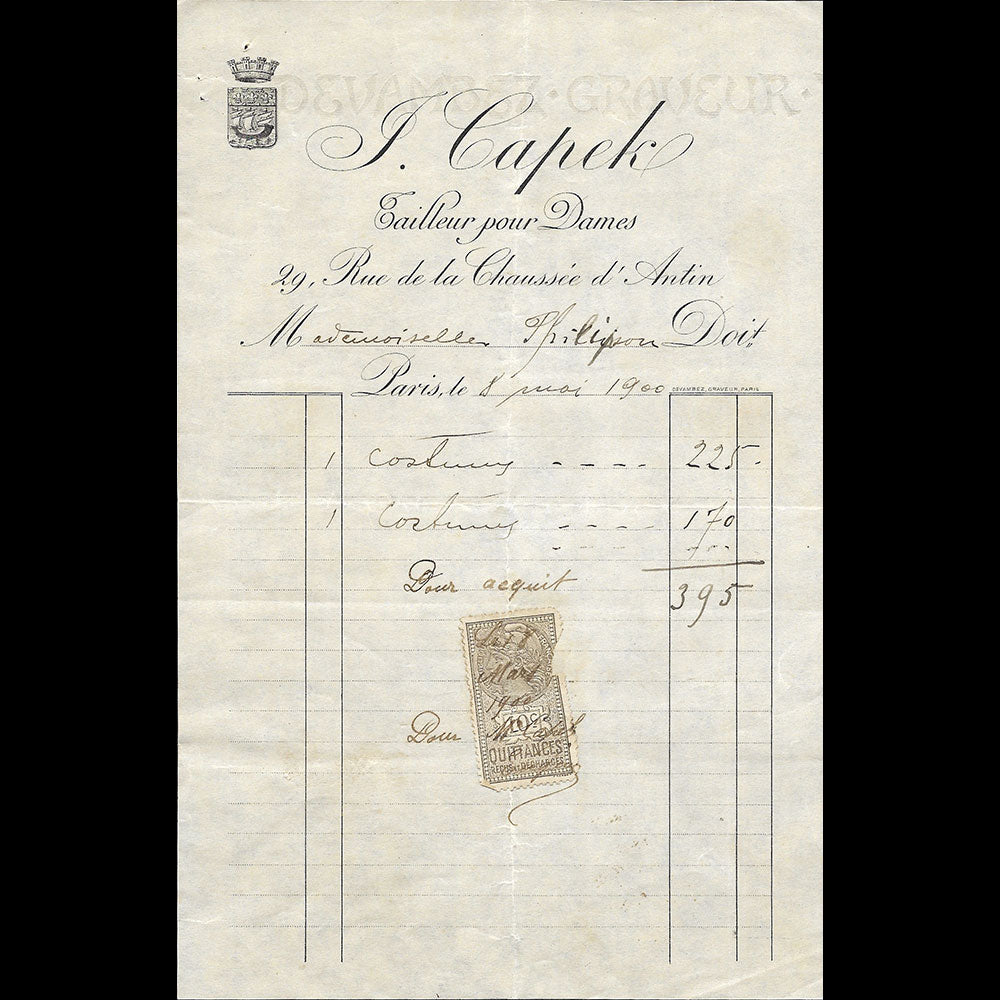 DEVAMBEZ · GRAVEUR ·
J. Capek
Tailleur pour Dames
29, Rue de la Chaussée d'Antin
Mademoiselle Philipson Doit
Paris, le 8 mai 1900 DEVAMBEZ, GRAVEUR, PARIS
1 costumes - - - - 225 -
1 Costumes - - - - 170
395
Pour acquit
Mars
1900
10c
Pour M Capek
QUITTANCES
REÇUS ET DÉCHARGES